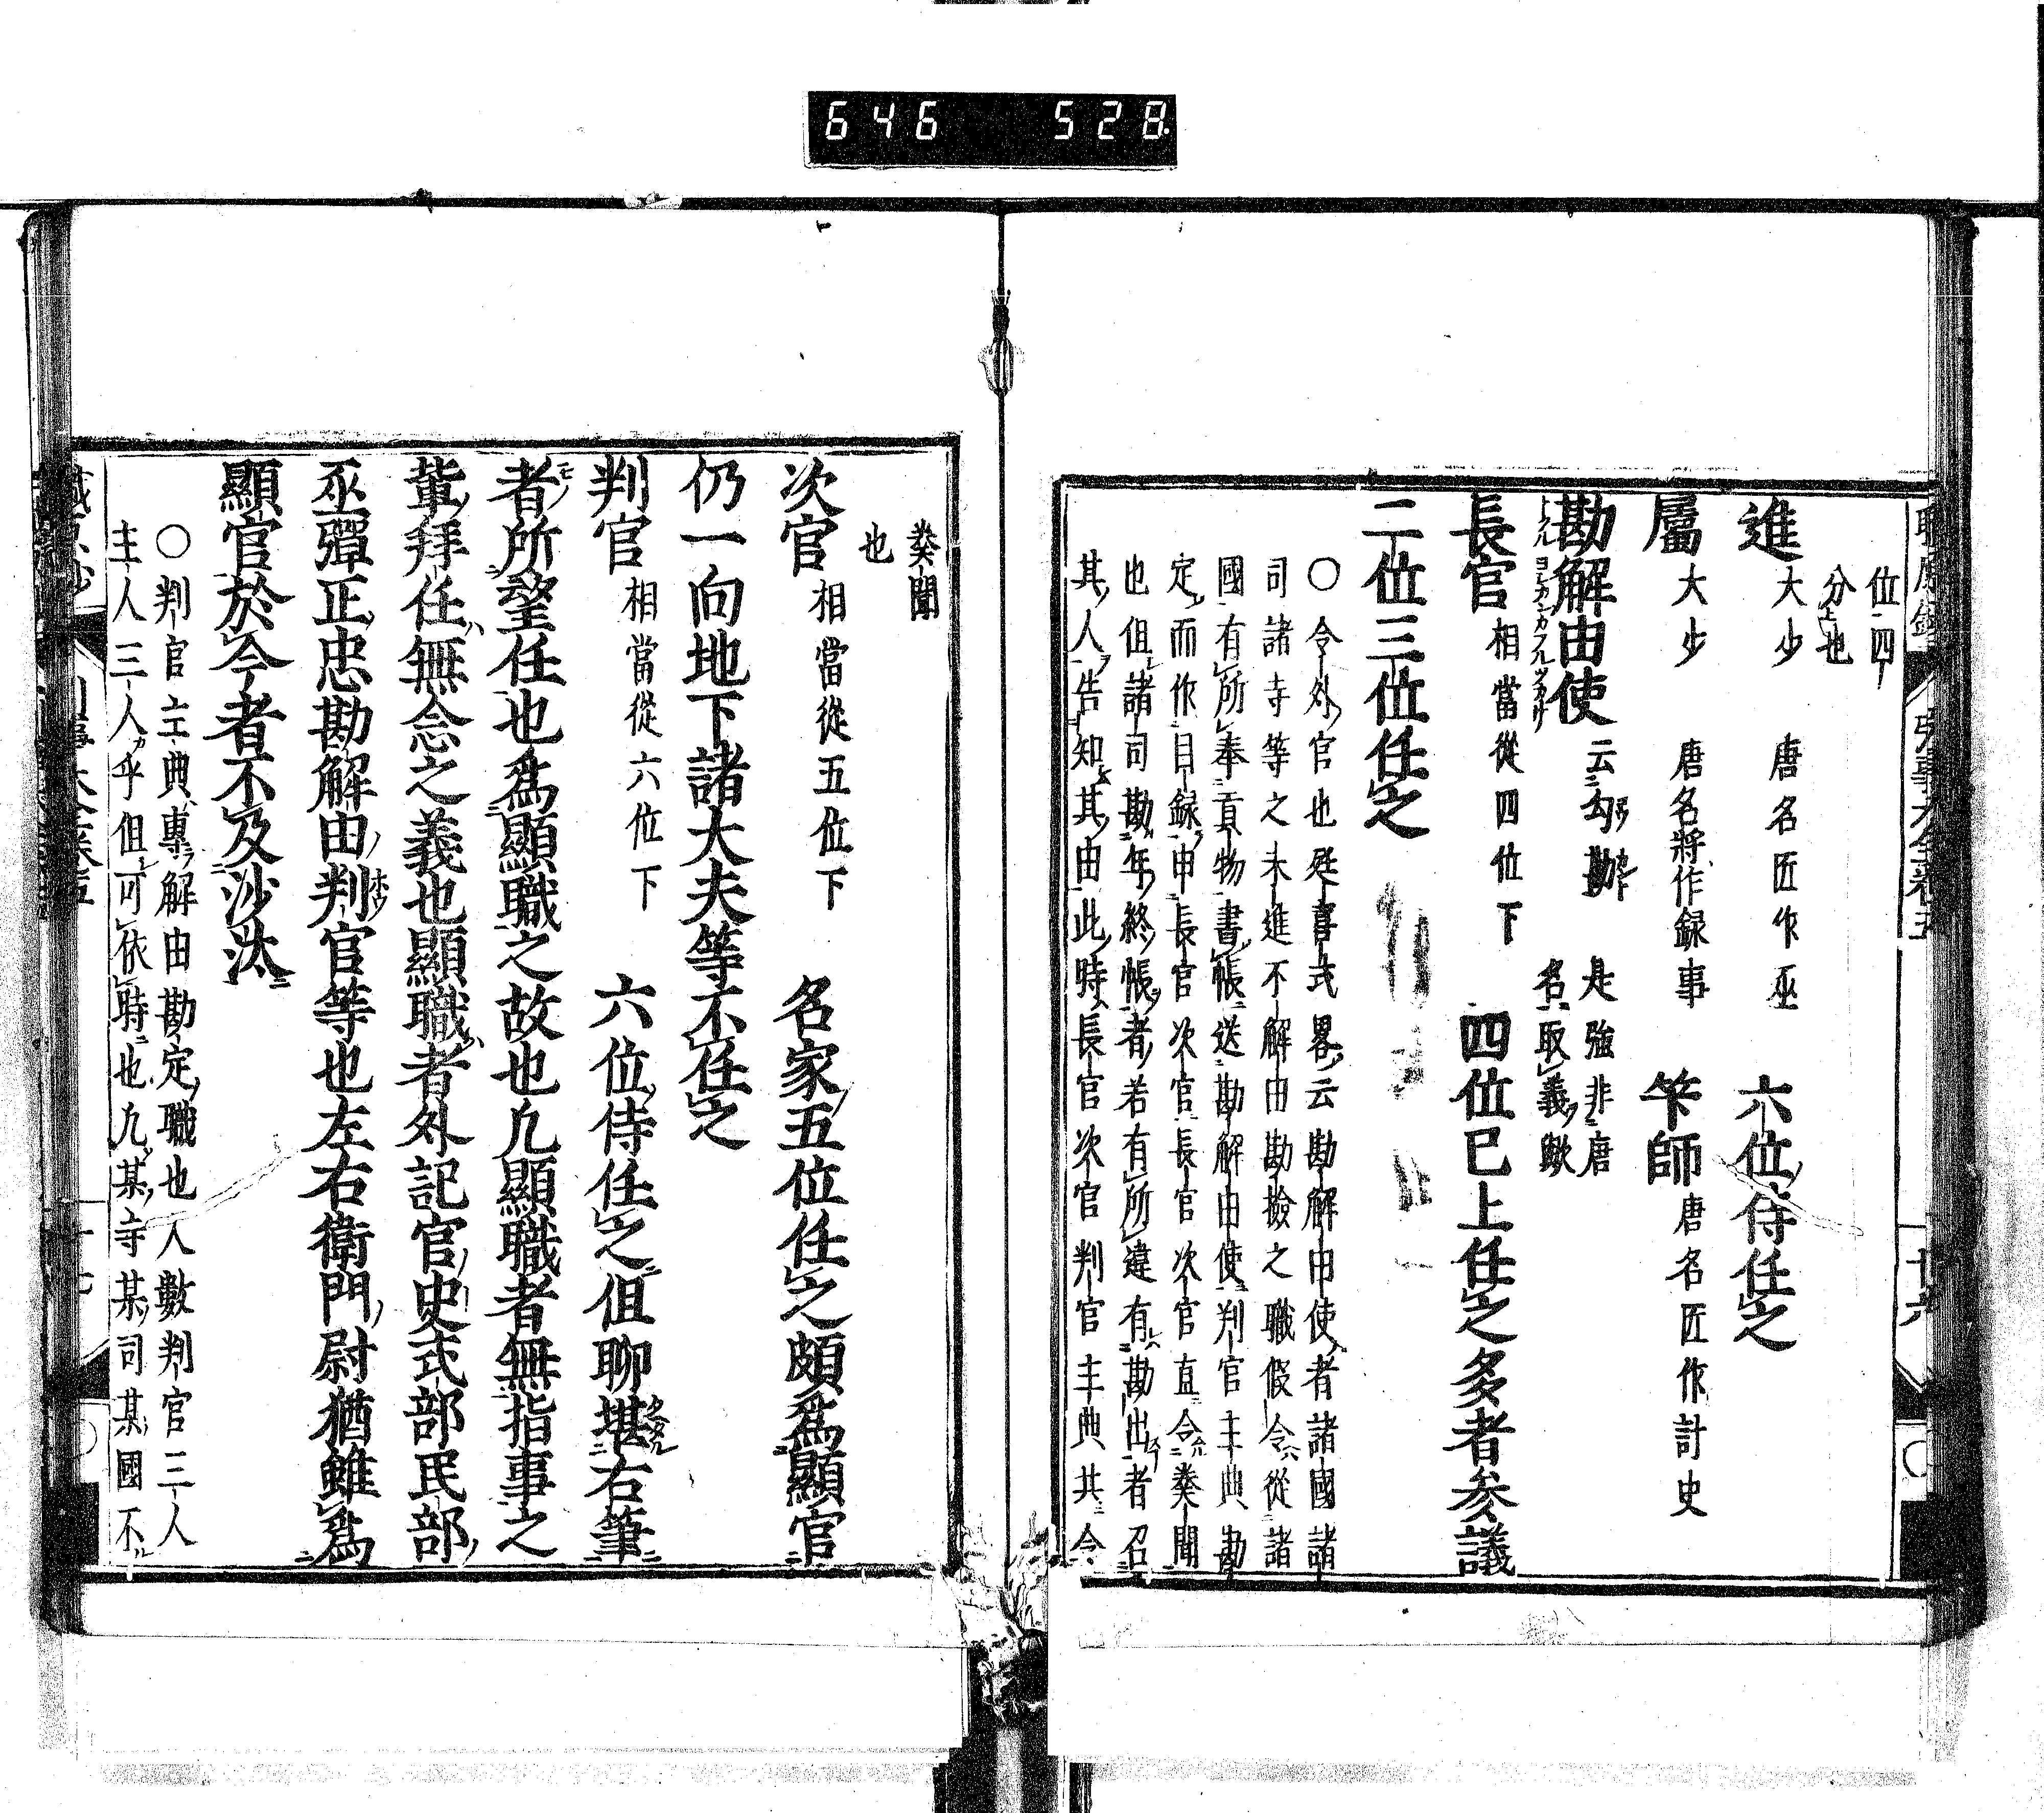 646 528
位四
分也
進 大少 唐名匠作丞 六位侍任之
屬 大少 唐名將作録事 筭師 唐名匠作計史
勘解由使 云勾勘 是強非唐
名取義歟
長官 相當從四位下 四位已上任之多者参議
二位三位任之
〇令外官也延喜式畧云勘解由使者諸國諸
司諸寺等之未進不解由勘撿之職假令從諸
國有所奉貢物書帳送勘解由使判官主典勘
定而作目録申長官次官長官次官直令奏聞
也但諸司勘年終帳者若有所違有勘出者召
其人告知其由此時長官次官判官主典共令
奏聞
也
次官 相當從五位下 名家五位任之頗爲顯官
仍一向地下諸大夫等不任之
判官 相當從六位下 六位侍任之但聊堪右筆
者所望任也爲顯職之故也凡顯職者無指事之
輩拜任無念之義也顯職者外記官史式部民部
丞彈正忠勘解由判官等也左右衛門尉猶雖爲
顯官於今者不及沙汰
〇判官主典專解由勘定職也人數判官三人
主人三人乎但可依時也凡某寺某司某國不